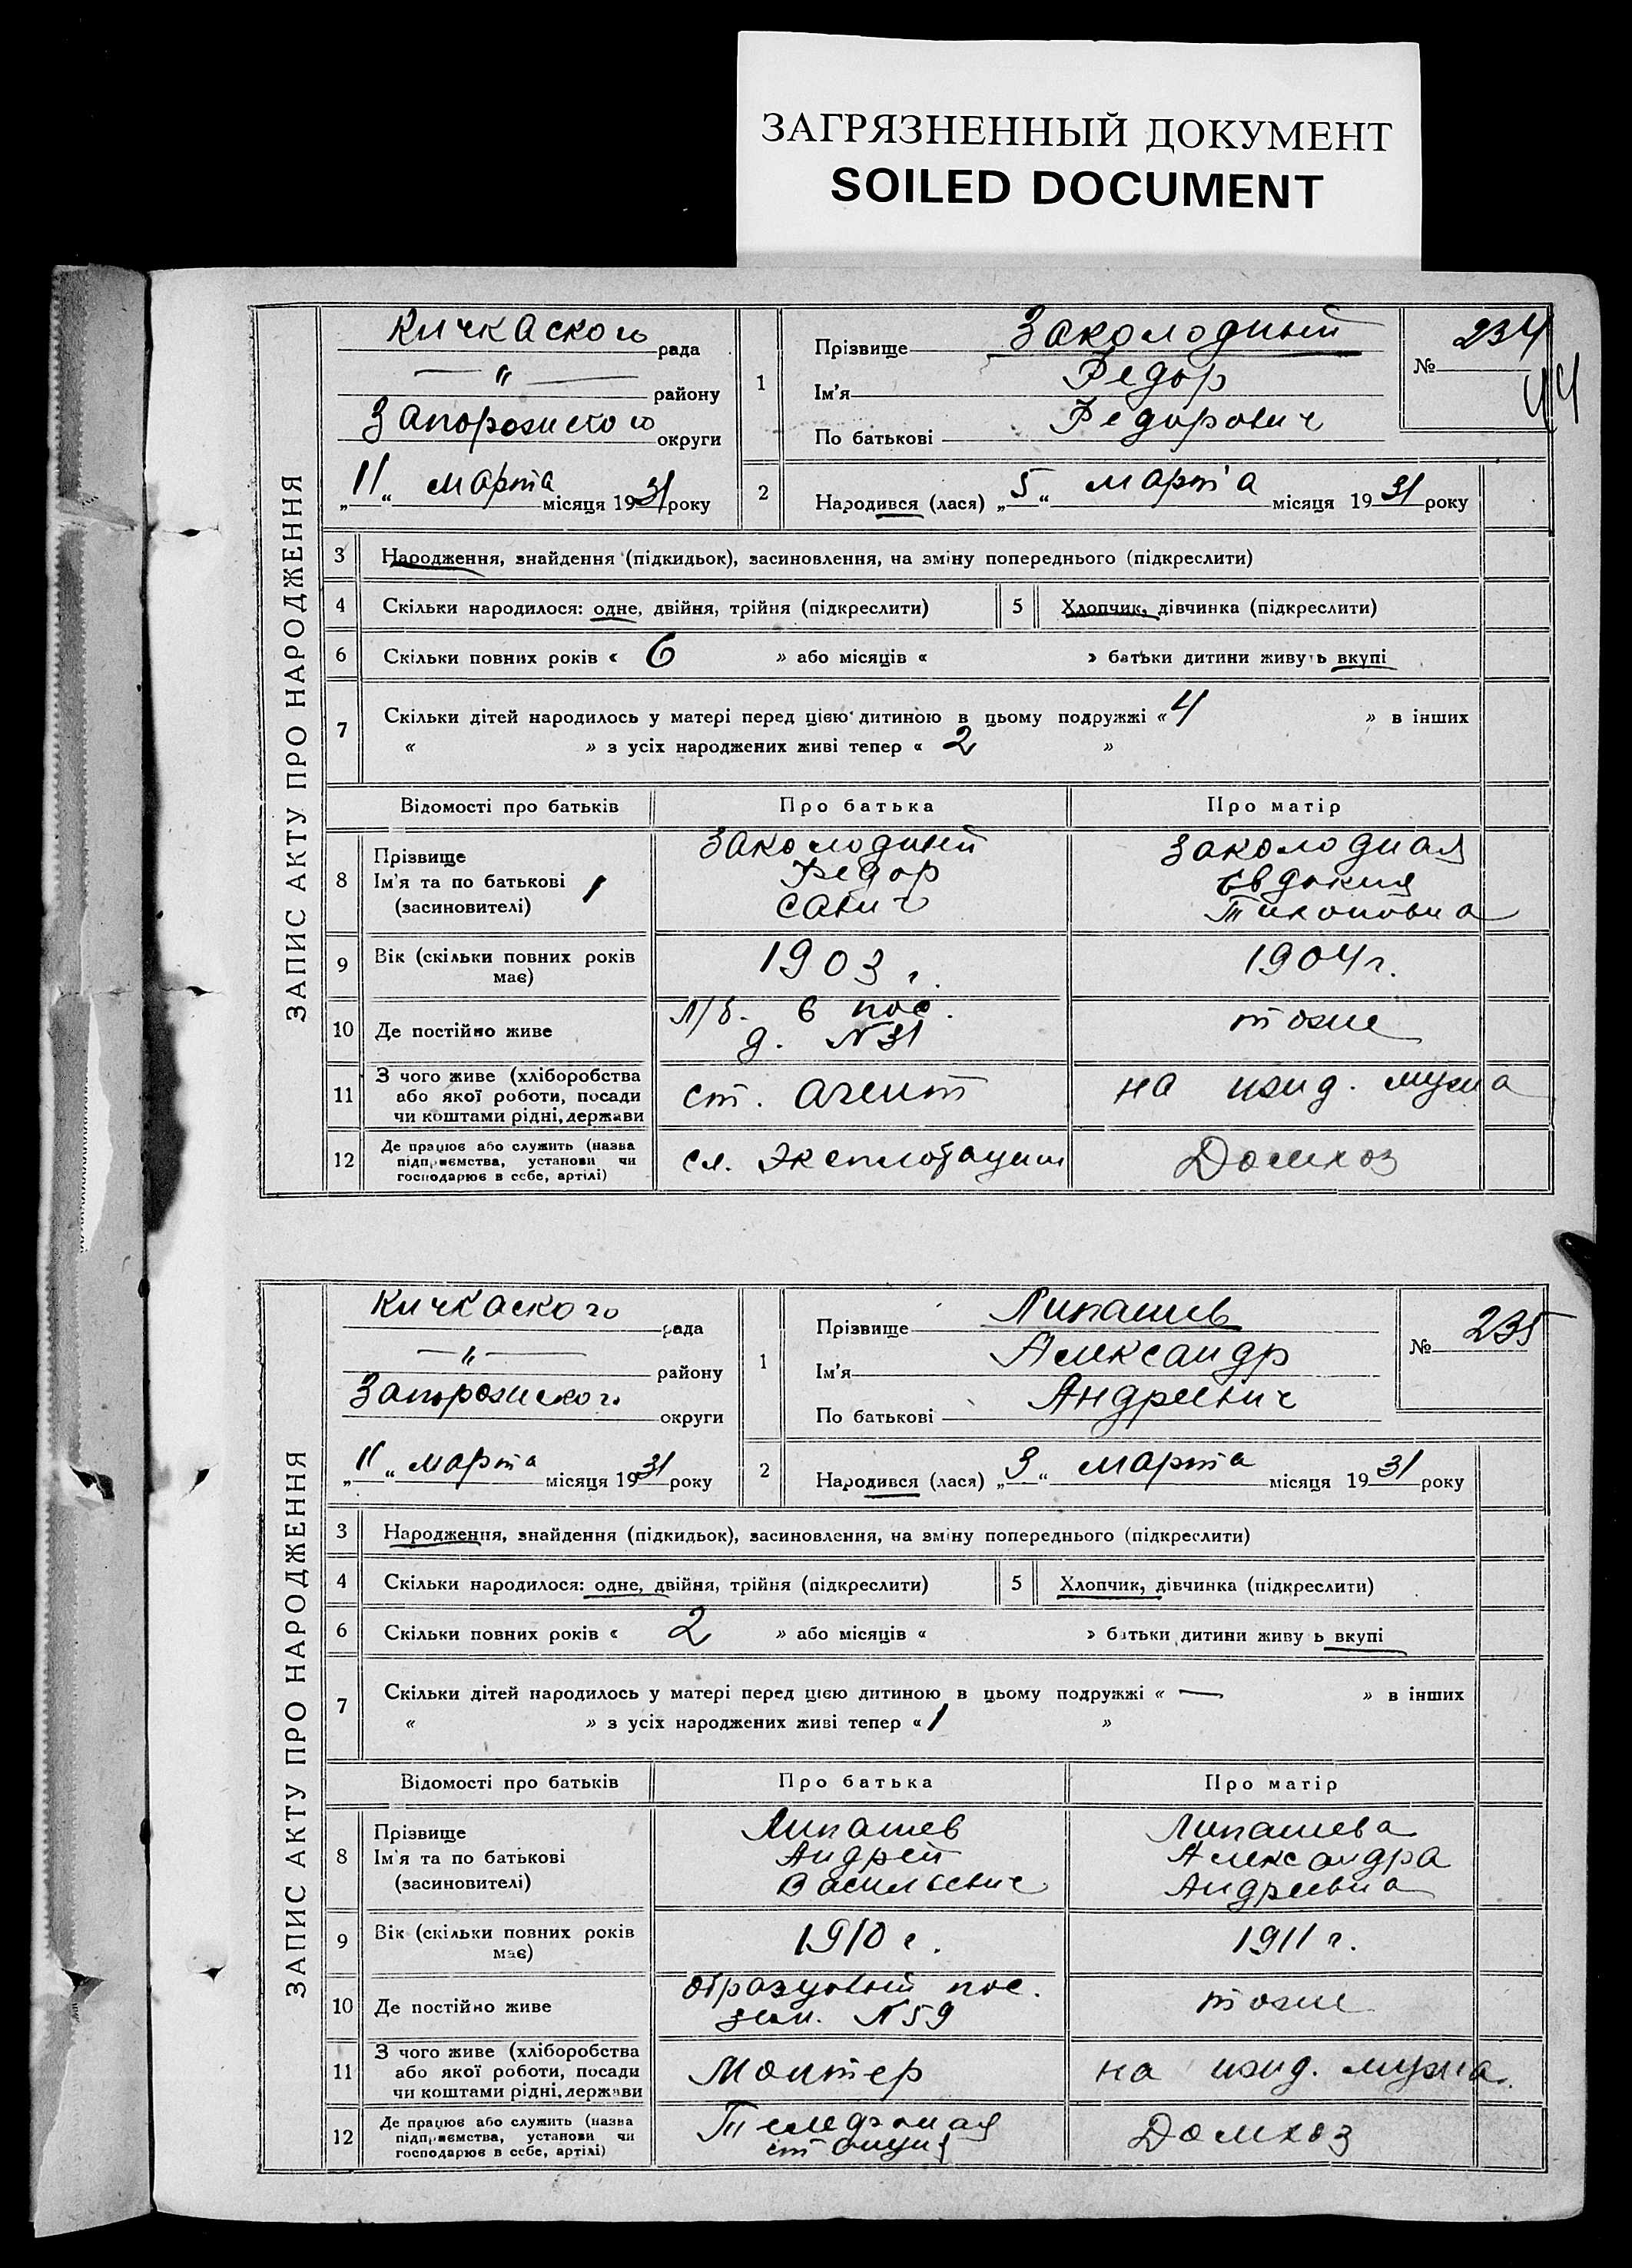 ЗАГРЯЗНЕННЫЙ ДОКУМЕНТ
SOILED DOCUMENT
ЗАПИС АКТУ ПРО НАРОДЖЕННЯ
Кичкаского рада
— " — району
Запорожского округи
„11“ марта місяця 1931 року
1
Прізвище Заколодный
Ім'я Федор
По батькові Федорович
№ 234
44
2 Народився (лася) „5“ марта місяця 1931 року
3 Народження, знайдення (підкидьок), засиновлення, на зміну попереднього (підкреслити)
4 Скільки народилося: одне, двійня, трійня (підкреслити) 5 Хлопчик, дівчинка (підкреслити)
6 Скільки повних років « 6 » або місяців « » батьки дитини живуть вкупі
7 Скільки дітей народилось у матері перед цією дитиною в цьому подружжі « 4 » в інших
« » з усіх народжених живі тепер « 2 »
Відомості про батьків Про батька Про матір
8 Прізвище
Ім'я та по батькові
(засиновителі)
Заколодный
Федор
Савич
Заколодная
Евдокия
Тихоновна
9 Вік (скільки повних років
має)
1903 г.
1904 г.
10 Де постійно живе
6 пос.
д. N 31
тоже
11 З чого живе (хліборобства
або якої роботи, посади
чи коштами рідні, держави
ст. агент
на ижд. мужа
12 Де працює або служить (назва
підприємства, установи чи
господарює в себе, артілі)
сл. Эксплотации
Домхоз
ЗАПИС АКТУ ПРО НАРОДЖЕННЯ
Кичкаского рада
— " — району
Запорожского округи
„11“ марта місяця 1931 року
1
Прізвище Липашев
Ім'я Александр
По батькові Андреевич
№ 235
2 Народився (лася) „3“ марта місяця 1931 року
3 Народження, знайдення (підкидьок), засиновлення, на зміну попереднього (підкреслити)
4 Скільки народилося: одне, двійня, трійня (підкреслити) 5 Хлопчик, дівчинка (підкреслити)
6 Скільки повних років « 2 » або місяців « » батьки дитини живуть вкупі
7 Скільки дітей народилось у матері перед цією дитиною в цьому подружжі « — » в інших
« » з усіх народжених живі тепер « 1 »
Відомості про батьків Про батька Про матір
8 Прізвище
Ім'я та по батькові
(засиновителі)
Липашев
Андрей
Васильевич
Липашева
Александра
Андреевна
9 Вік (скільки повних років
має)
1910 г.
1911 г.
10 Де постійно живе
образцовый пос.
зем. N 59
тоже
11 З чого живе (хліборобства
або якої роботи, посади
чи коштами рідні, держави
Монтер
на ижд. мужа.
12 Де працює або служить (назва
підприємства, установи чи
господарює в себе, артілі)
Телефоная
станция
Домхоз